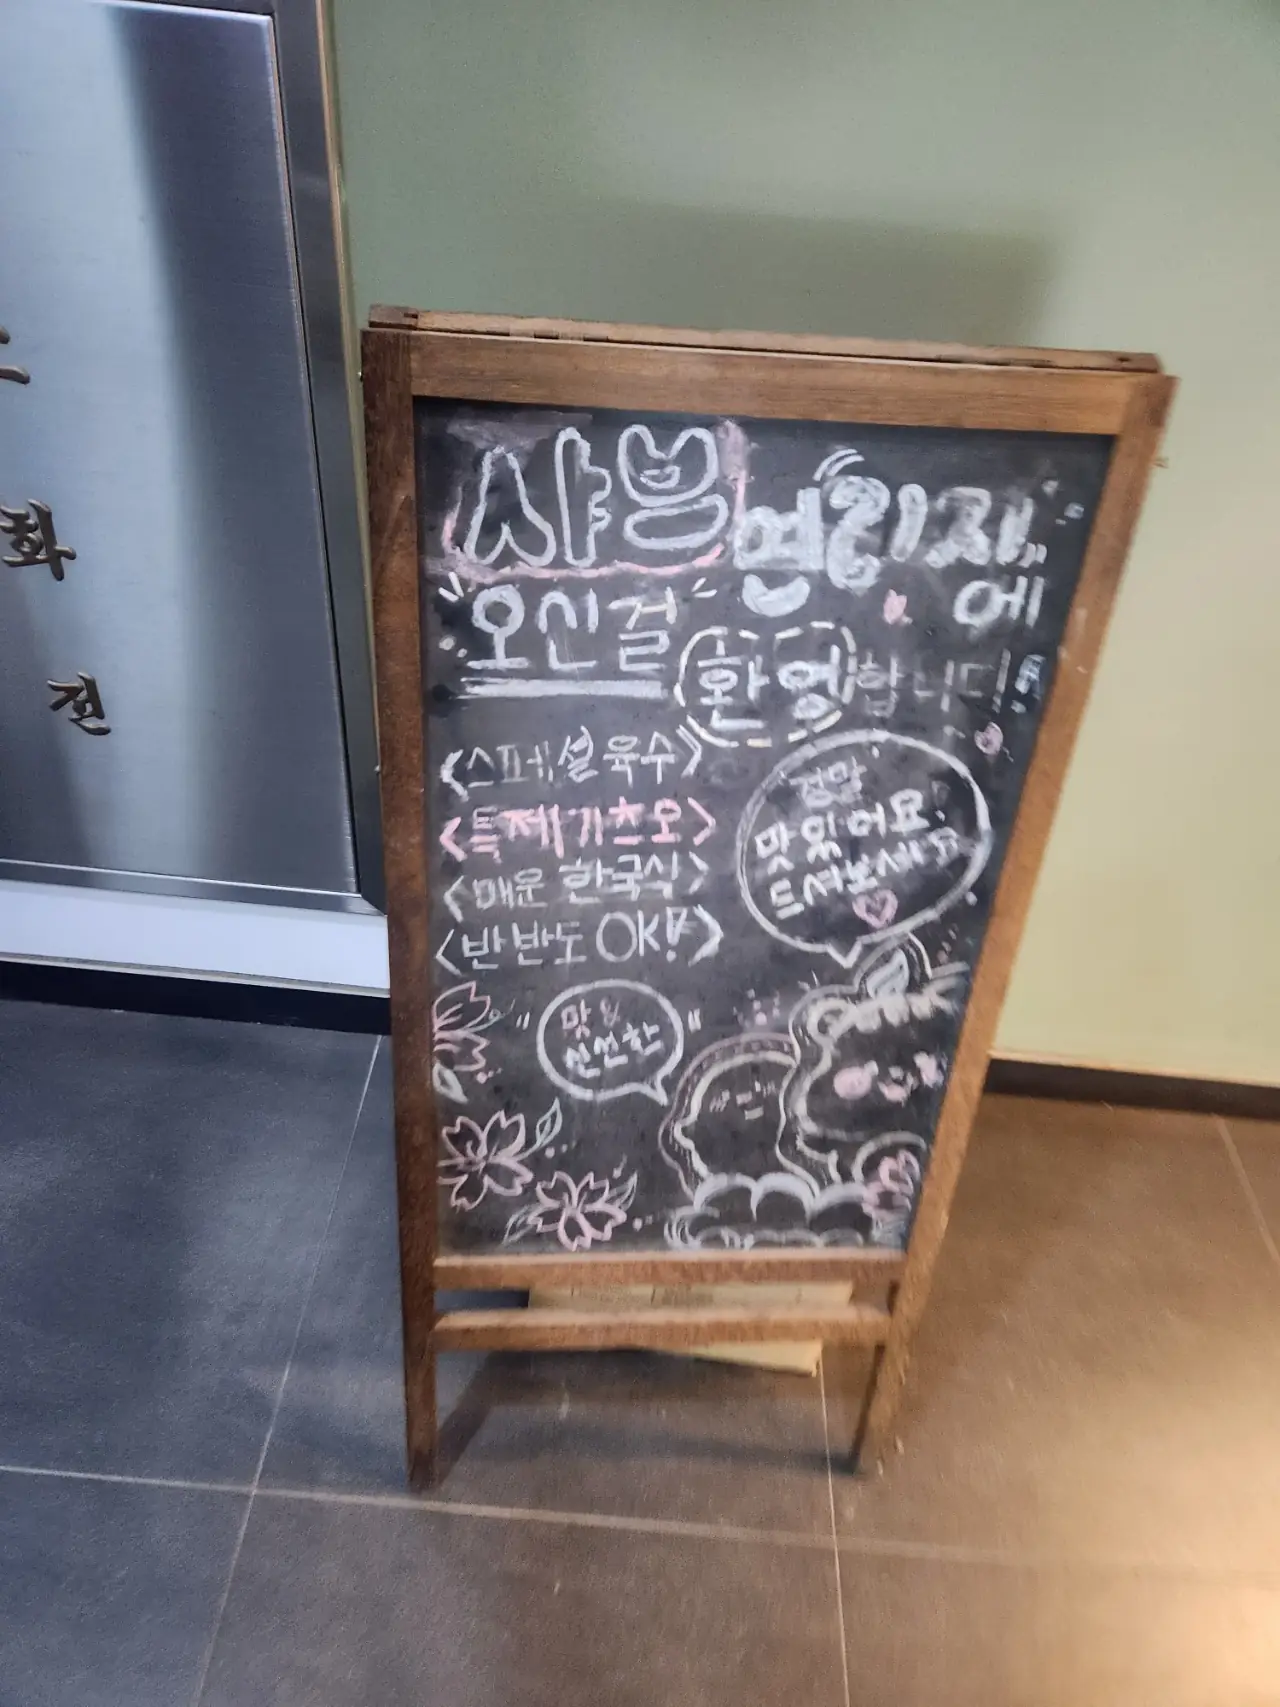 샤브 연리지
에
오신걸 환영합니다!
<스페셜육수>
<특제가츠오>
<매운 한국식>
<반반도 OK!>
정말
맛있어요.
드셔보세요
맛있
신선한
화
전